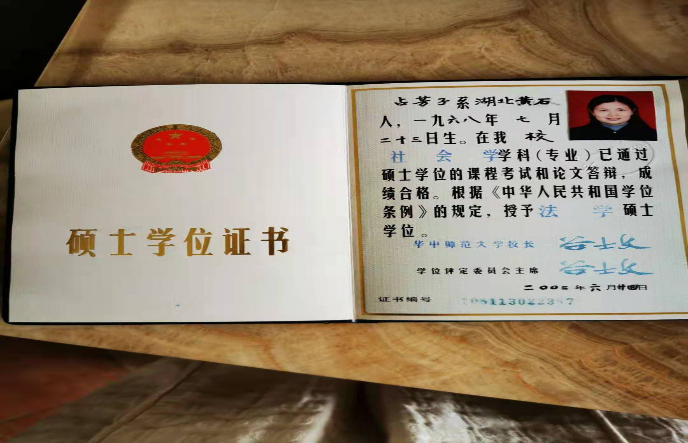 硕士学位证书
占芳子系湖北黄石
人，一九六八年 七 月
二十三日生。在我 校
社 会 学学科(专业)已通过
硕士学位的课程考试和论文答辩，成
绩合格。根据《中华人民共和国学位
条例》的规定，授予法 学 硕士
学位。
华中师范大学校长
学位评定委员会主席
年六月
证书编号